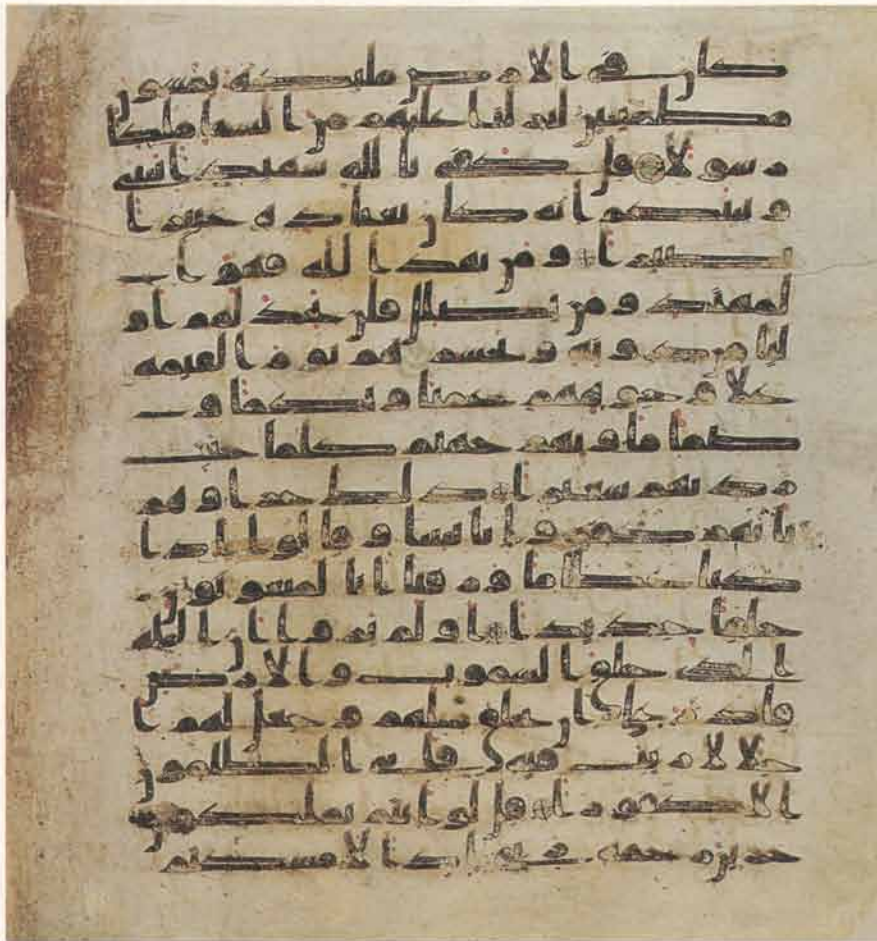 كان في الارض ملئكة يمشون
مطمئنين لنزلنا عليهم من السما ملكا
رسولا قل كفى بالله شهيدا بيني
و بينكم انه كان بعباده خبيرا
بصيرا و من يهد الله فهو ا
لمهتد و من يضلل فلن تجد لهم او
ليا من دونه و نحشرهم يوم القيمه
على وجوههم عميا و بكما و
صما ماويهم جهنم كلما خبت
زدنهم سعيرا ذلك جزاوهم
بانهم كفروا بايتنا و قالوا اذا
كنا عظما و رفتا انا لمبعوثون
خلقا جديدا اولم يروا ان الله
الذي خلق السموت و الارض
قادر على ان يخلق مثلهم و جعل لهم ا
جلا لا ريب فيه فابى الظلمون
الا كفورا قل لو انتم تملكون
خزين رحمه ربي اذا لامسكتم